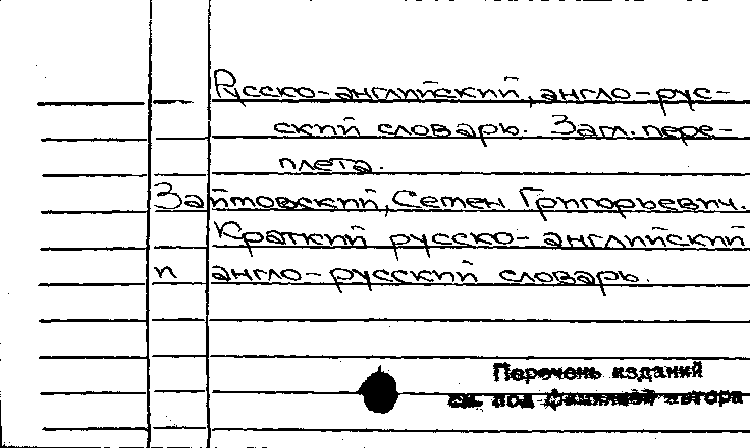 Русско-английский, англо-рус-
ский словарь. Загл. пере-
плета.
Займовский, Семен Григорьевич.
Краткий русско-английский
и англо-русский словарь.
Перечень изданий
см. под фамилией автора